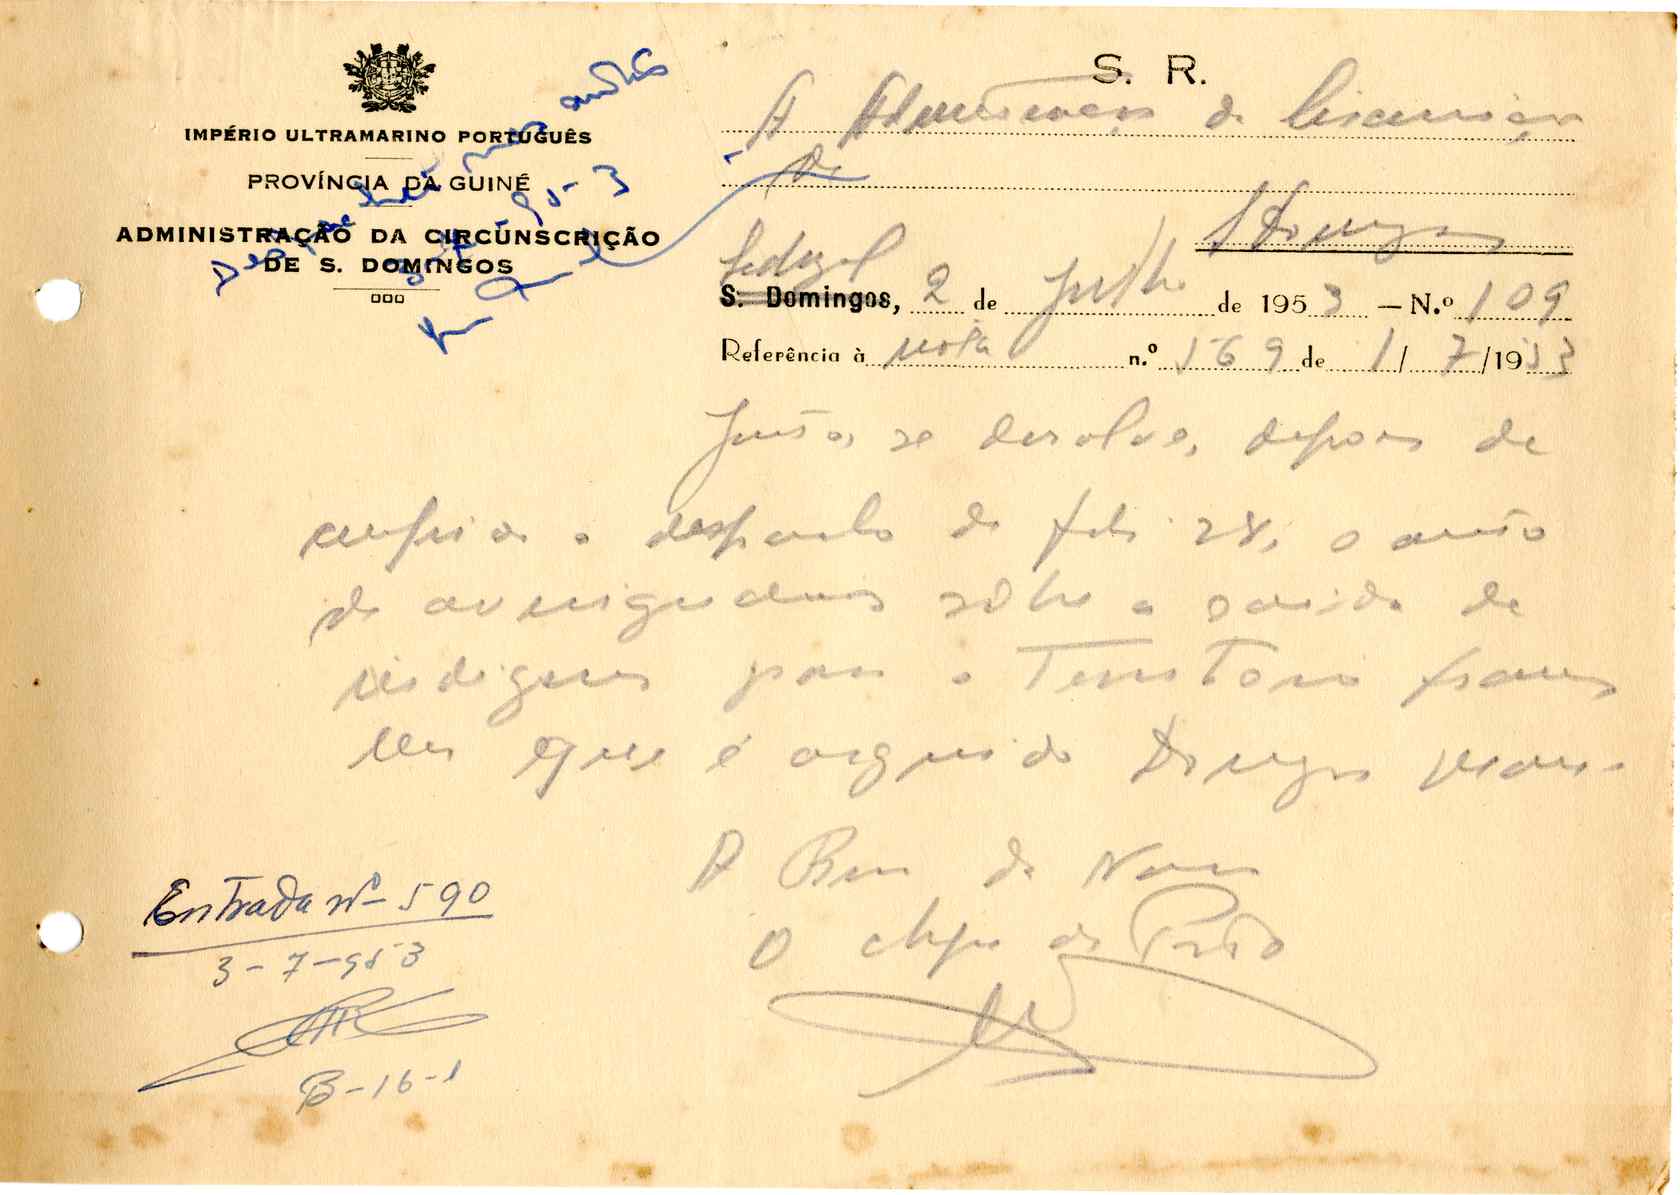 S. R.
IMPÉRIO ULTRAMARINO PORTUGUÊS
PROVÍNCIA DA GUINÉ
ADMINISTRAÇÃO DA CIRCÚNSCRIÇÃO
DE S. DOMINGOS
A Administração da Circunscrição
de
S Domingos
S. Domingos, 2 de Julho de 1953 — N.º 109
Referência à nota n.º 569 de 1/7/1953
Junto, se devolve, depois de
cumprido o despacho de fls 28, o auto
de averiguações sôbre a saída de
indigenas para o Território francês
em que é arguido Domingos
A Bem da Nação
O Chefe do Posto
Entrada nº 590
3-7-953
B-16-1